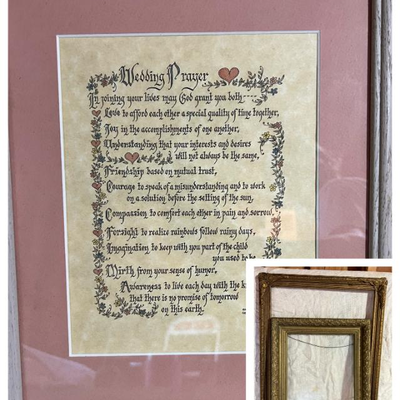 Wedding Prayer
In joining your lives may God grant you both----
Love to afford each other a special quality of time together,
Joy in the accomplishments of one another,
Understanding that your interests and desires
will not always be the same,
Friendship based on mutual trust,
Courage to speak of a misunderstanding and to work
on a solution before the setting of the sun,
Compassion to comfort each other in pain and sorrow,
Forsight to realize rainbows follow rainy days,
Imagination to keep with you part of the child
you used to be
Mirth from your sense of humor,
Awareness to live each day with the k
that there is no promise of tomorrow
on this earth.